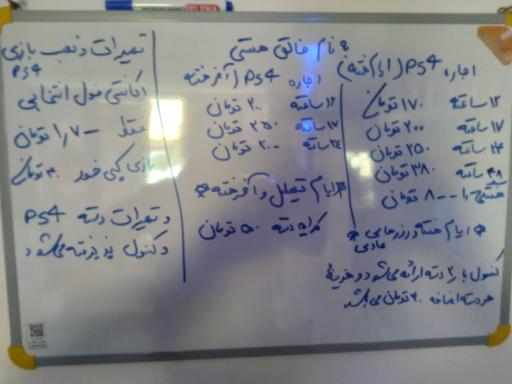 به نام خالق هستی
اجاره PS4 (ایام هفته)
۱۲ ساعته ۱۷۰ تومان
۱۷ ساعته ۲۰۰ تومان
۲۴ ساعته ۲۵۰ تومان
۴۸ ساعته ۳۸۰ تومان
هفتگی ۸۰۰ تومان
* ایام هفته و روزهای عادی *
کنسول با ۲ دسته ارائه می‌شود و هزینهٔ
هر دسته اضافه ۴۰ تومان می‌باشد
اجاره PS4 (آخر هفته)
۱۲ ساعته ۲۰۰ تومان
۱۷ ساعته ۲۵۰ تومان
۲۴ ساعته ۳۰۰ تومان
* ایام تعطیل و آخر هفته *
کرایه دسته ۵۰ تومان
تعمیرات و نصب بازی
PS4
اکانتی فول انتخابی
فقط ۱,۷۰۰ تومان
بازی کپی خور ۴۰ تومان
و تعمیرات دسته PS4
و کنسول پذیرفته می‌شود